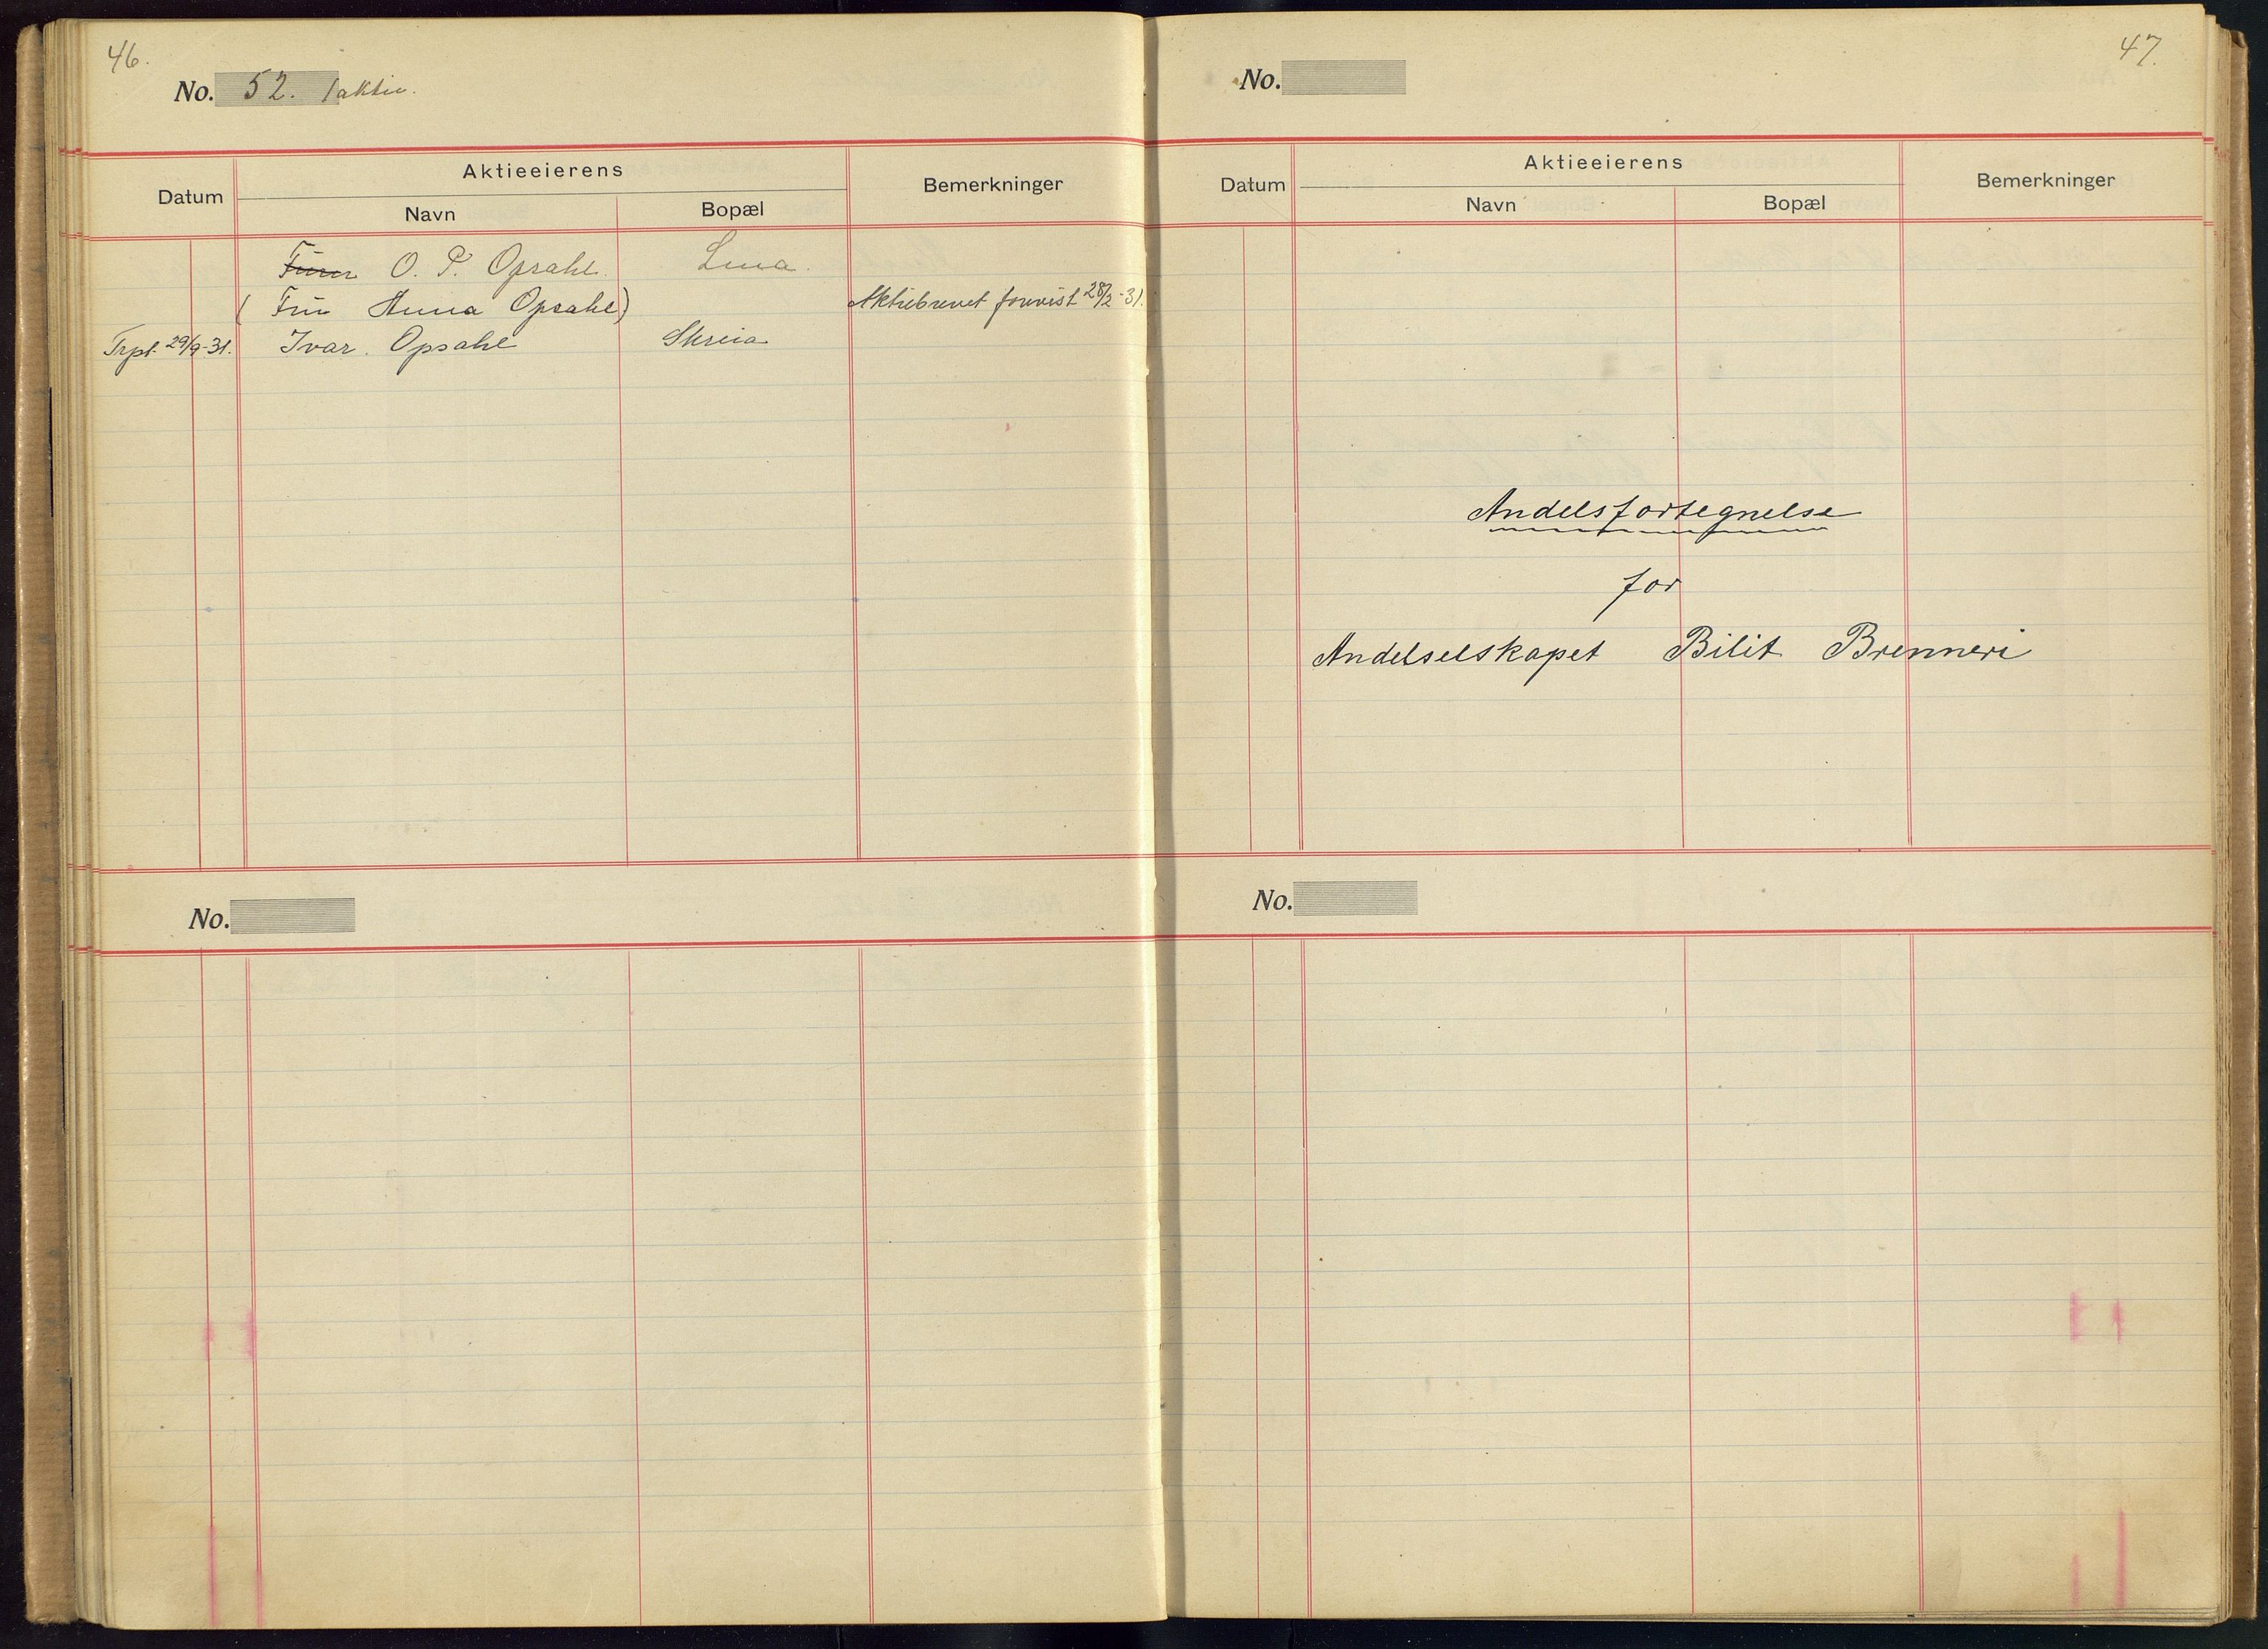 46.
No. 52. 1 aktie.
Aktieeierens
Datum Navn Bopæl Bemerkninger
O. P. Opsahl. Lena.
(Fru Anna Opsahl) Aktiebrevet forevist 28/2-31.
Trpt. 29/9-31. Ivar Opsahl Skreia
No.
47.
No.
Aktieeierens
Datum Navn Bopæl Bemerkninger
Andelsfortegnelse
for
Andelselskapet Bilit Brenneri
No.